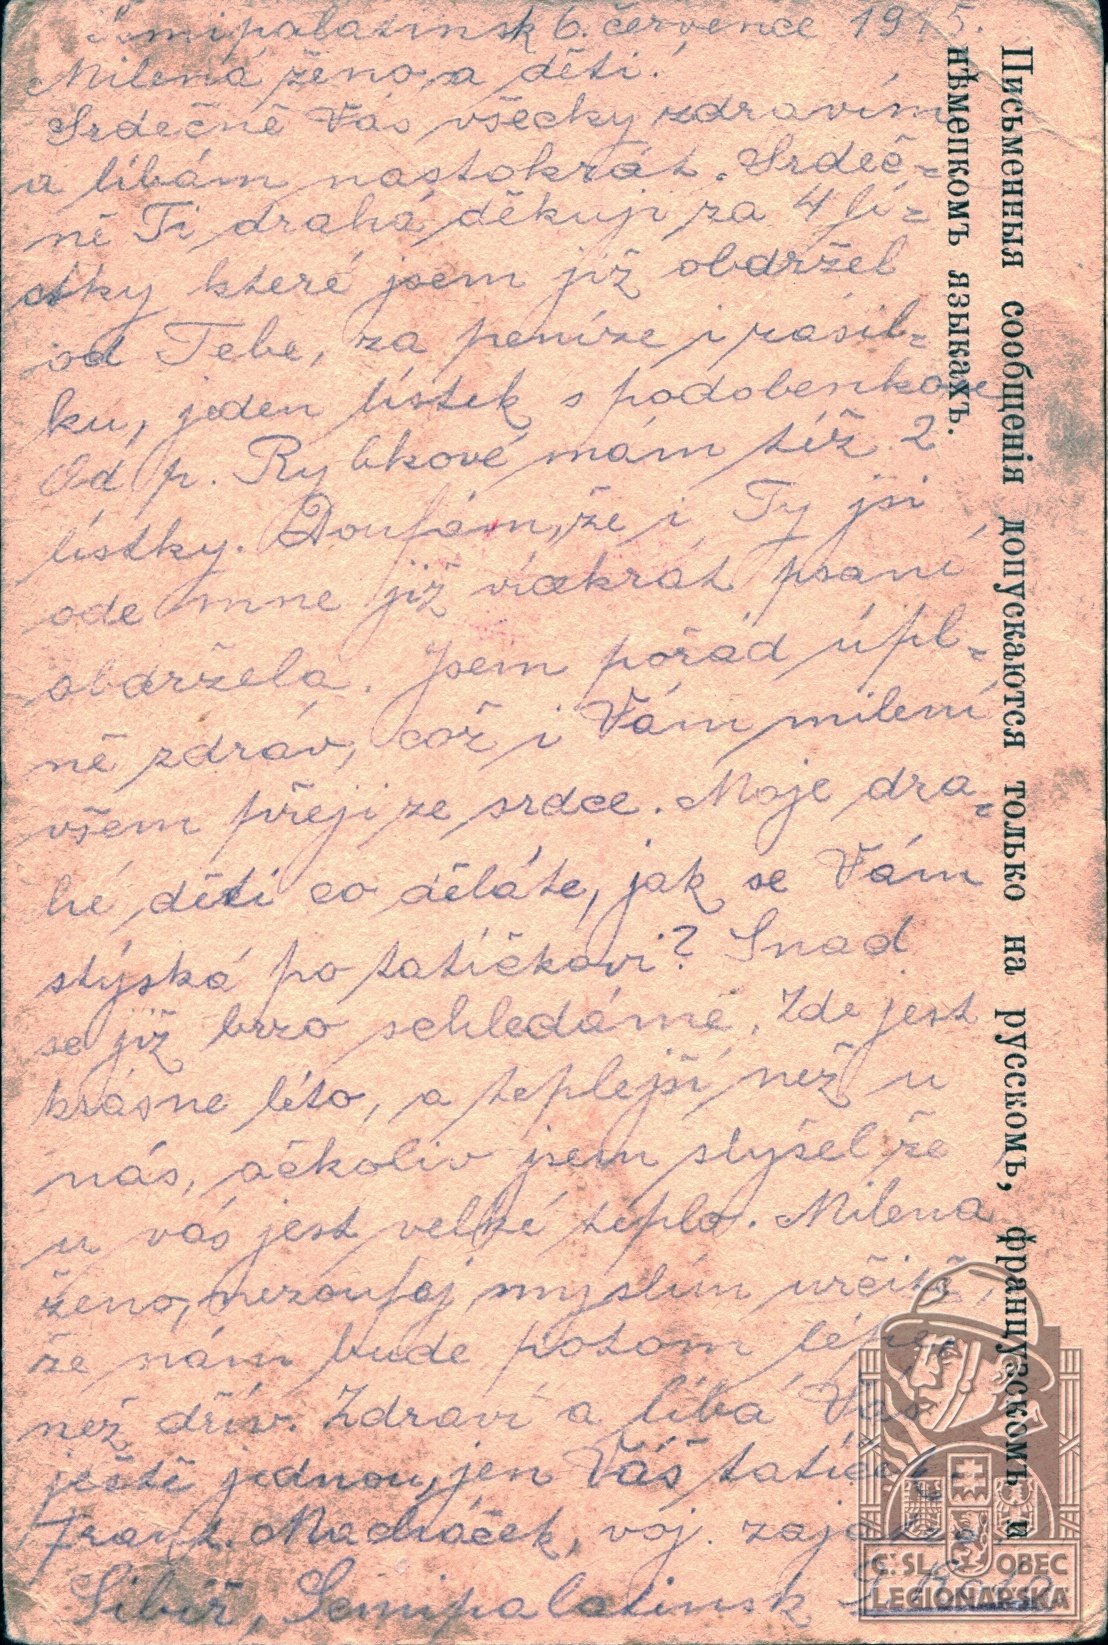 Semipalatinsk 6. července 1915.
Milená ženo, a děti!
Srdečně Vás všecky zdravím
a líbám nastokrát. Srdeč=
ně Ti drahá děkuji za 4 lí=
stky které jsem již obdržel
od Tebe, za peníze i zásil=
ku, jeden lístek s podobenkou
Od p. Rybkové mám též 2
lístky. Doufám, že i Ty jsi
ode mne již vícekrát psaní
obdržela. Jsem pořád úpl=
ně zdráv, což i Vám milení
všem přeji ze srdce. Moje dra=
hé děti co děláte, jak se Vám
stýská po tatíčkovi? Snad
se již brzo schledáme. Zde jest
krásne léto, a teplejší než u
nás, ačkoliv jsem slyšel že
u vás jest velké teplo. Milená
ženo, nezoufej myslím určitě,
že nám bude potom lépe
než dřív. Zdraví a líbá Vás
ještě jednou, jen Váš tatíček
Franz. Madráček, voj. zajatec
Sibiř, Semipalatinsk
Письменныя сообщенія допускаются только на русскомъ, французскомъ и
нѣмецкомъ языкахъ.
Č. SL. OBEC
LEGIONÁŘSKÁ